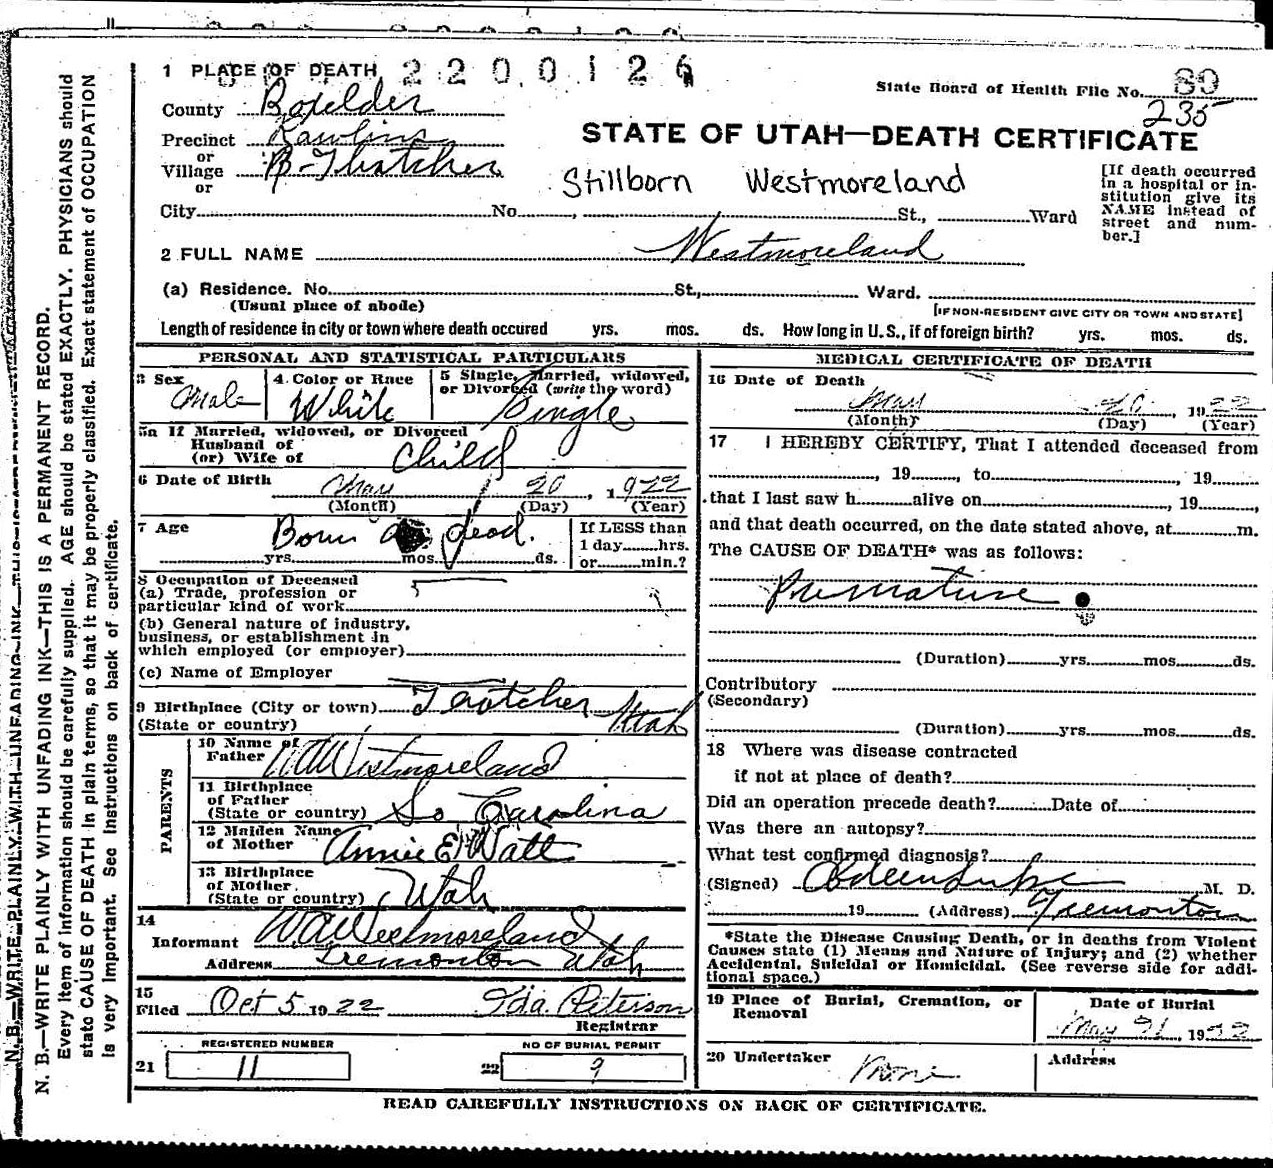 1 PLACE OF DEATH 2200126
State Board of Health File No. 89
235
County Boxelder
Precinct Rawlins
or
Village B-Thatcher
or
STATE OF UTAH—DEATH CERTIFICATE
Stillborn Westmoreland
[If death occurred in a hospital or institution give its NAME instead of street and number.]
City No. , St., Ward
2 FULL NAME Westmoreland
(a) Residence. No. St., Ward.
(Usual place of abode)
[IF NON-RESIDENT GIVE CITY OR TOWN AND STATE]
Length of residence in city or town where death occured yrs. mos. ds. How long in U. S., if of foreign birth? yrs. mos. ds.
PERSONAL AND STATISTICAL PARTICULARS
3 Sex
Male
4 Color or Race
White
5 Single, Married, widowed,
or Divorced (write the word)
Single
5a If Married, widowed, or Divorced
Husband of
(or) Wife of
Child
6 Date of Birth
May 20, 1922
(Month) (Day) (Year)
7 Age
Born dead.
yrs. mos. ds.
If LESS than
1 day hrs.
or min.?
8 Occupation of Deceased
(a) Trade, profession or
particular kind of work
(b) General nature of industry,
business, or establishment in
which employed (or employer)
(c) Name of Employer
9 Birthplace (City or town) Thatcher
(State or country) Utah
PARENTS
10 Name of
Father W A Westmoreland
11 Birthplace
of Father
(State or country) So Carolina
12 Maiden Name
of Mother Annie E Watt
13 Birthplace
of Mother.
(State or country) Utah
14
Informant W A Westmoreland
Address Tremonton Utah
15
Filed Oct 5 1922 Ida. Peterson
Registrar
REGISTERED NUMBER
21 11
NO OF BURIAL PERMIT
22 9
MEDICAL CERTIFICATE OF DEATH
16 Date of Death
May 20, 1922
(Month) (Day) (Year)
17 I HEREBY CERTIFY, That I attended deceased from
, 19 to , 19
that I last saw h alive on , 19 ,
and that death occurred, on the date stated above, at m.
The CAUSE OF DEATH* was as follows:
Premature
(Duration) yrs. mos. ds.
Contributory
(Secondary)
(Duration) yrs. mos. ds.
18 Where was disease contracted
if not at place of death?
Did an operation precede death? Date of
Was there an autopsy?
What test confirmed diagnosis?
(Signed) M. D.
19 (Address) Tremonton
*State the Disease Causing Death, or in deaths from Violent
Causes state (1) Means and Nature of Injury; and (2) whether
Accidental, Suicidal or Homicidal. (See reverse side for addi-
tional space.)
19 Place of Burial, Cremation, or
Removal
Date of Burial
May 21, 1922
20 Undertaker
None
Address
READ CAREFULLY INSTRUCTIONS ON BACK OF CERTIFICATE.
N. B.—WRITE PLAINLY WITH UNFADING INK—THIS IS A PERMANENT RECORD.
Every item of information should be carefully supplied. AGE should be stated EXACTLY. PHYSICIANS should
state CAUSE OF DEATH in plain terms, so that it may be properly classified. Exact statement of OCCUPATION
is very important. See Instructions on back of certificate.